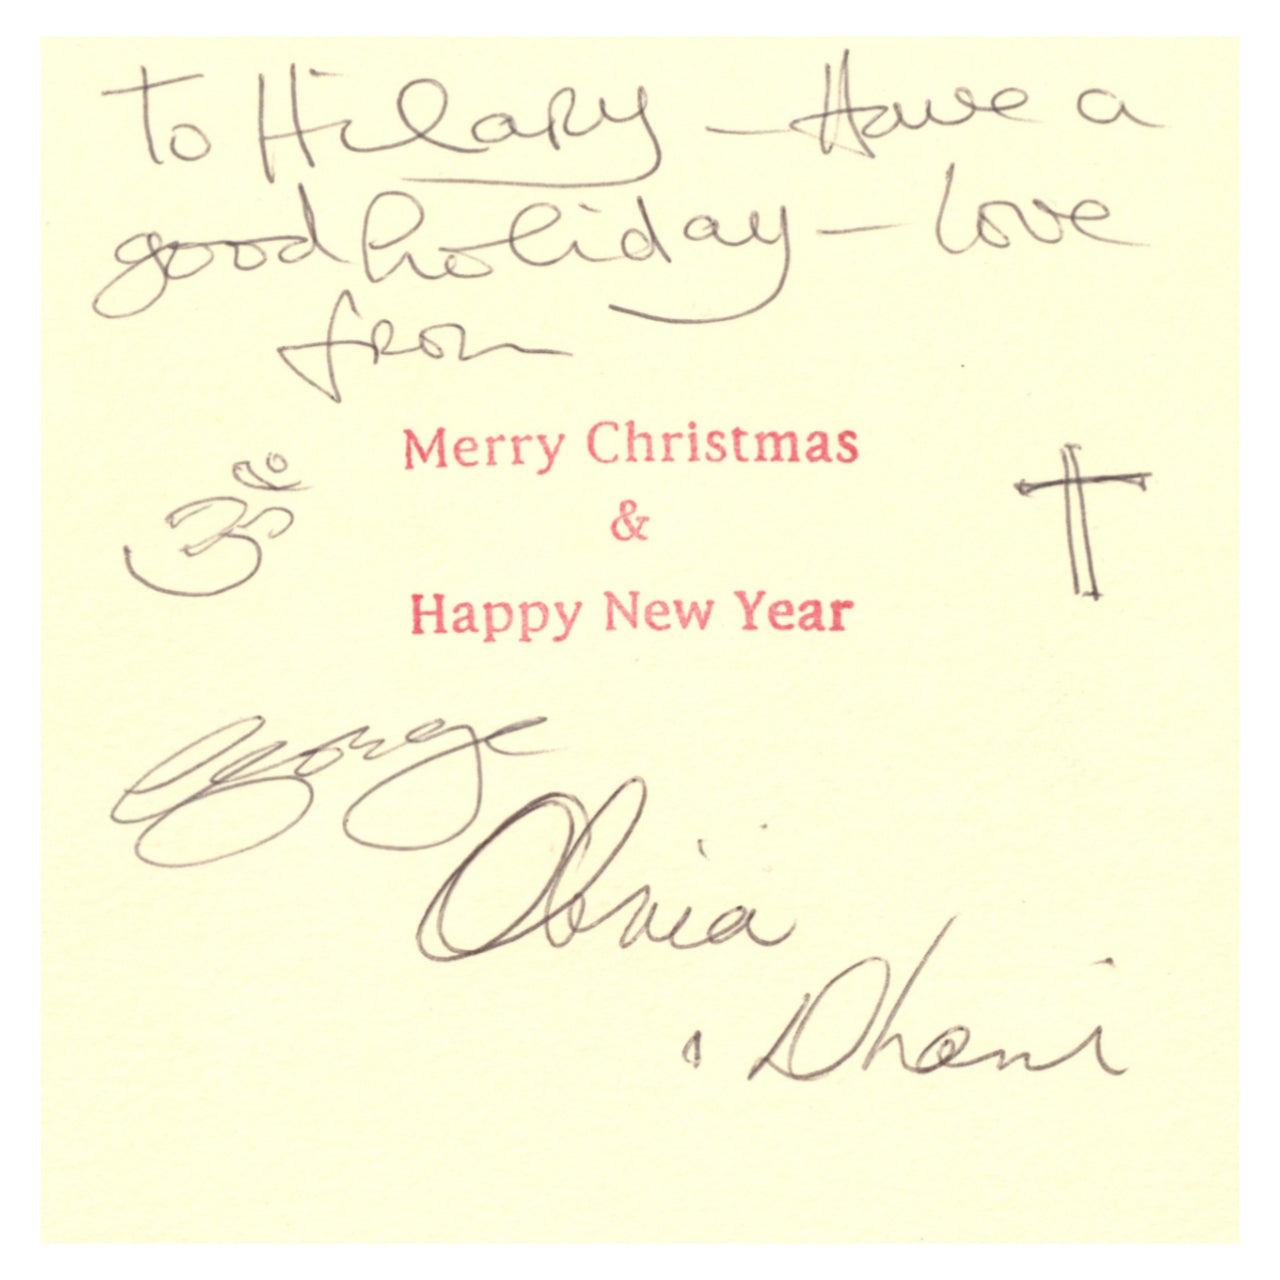 To Hilary – Have a
good holiday – love
from
Merry Christmas
&
Happy New Year
ॐ
George
Olivia
& Dhani